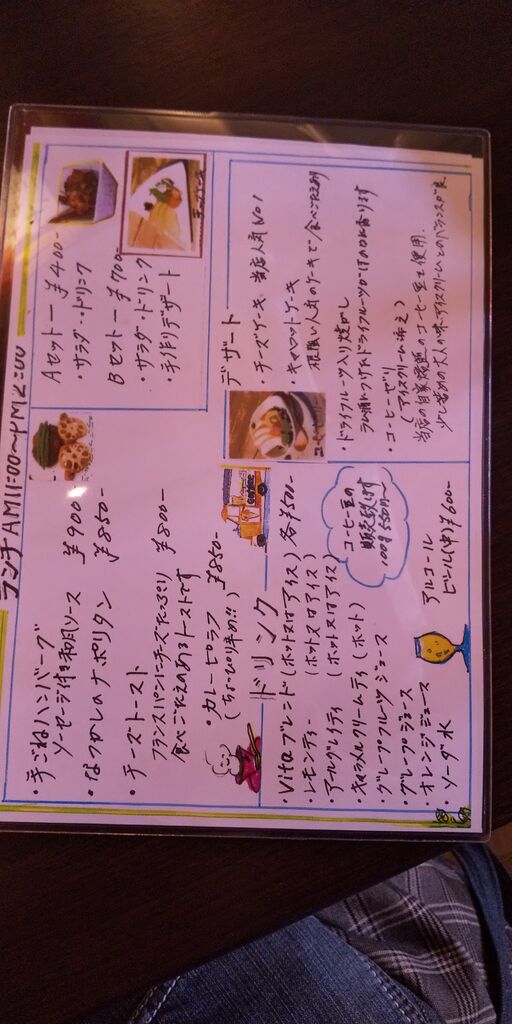 ランチ AM11:00〜PM2:00
・手ごねハンバーグ
ソーセージ付き和風ソース ¥900-
・なつかしのナポリタン ¥850-
・チーズトースト
フランスパンにチーズたっぷり ¥800-
食べごたえのあるトーストです
・カレーピラフ ¥850-
(ちょっぴり辛め!!)
Aセット ー ¥400-
・サラダ・ドリンク
Bセット ー ¥700
・サラダ・ドリンク
・手作りデザート
ドリンク
・Vitaブレンド(ホット又はアイス) 各¥500-
・レモンティー (ホット又はアイス)
・アールグレイティ (ホット又はアイス)
・キャラメルクリームティ (ホット)
・グレープフルーツジュース
・グレープジュース
・オレンジジュース
ソーダ水
コーヒー豆の
販売致します
100g 550円〜
アルコール
ビール(中)¥600-
デザート
・チーズケーキ 当店人気NO1
・キャロットケーキ
根強い人気のケーキで食べごたえあり
・ドライフルーツ入り
ラム酒に
・コーヒーゼリー
(アイスクリーム添え)
当店の自家焙煎のコーヒー豆を使用
少し苦めの大人の味 アイスクリームとのバランスが良
コーヒーゼリー